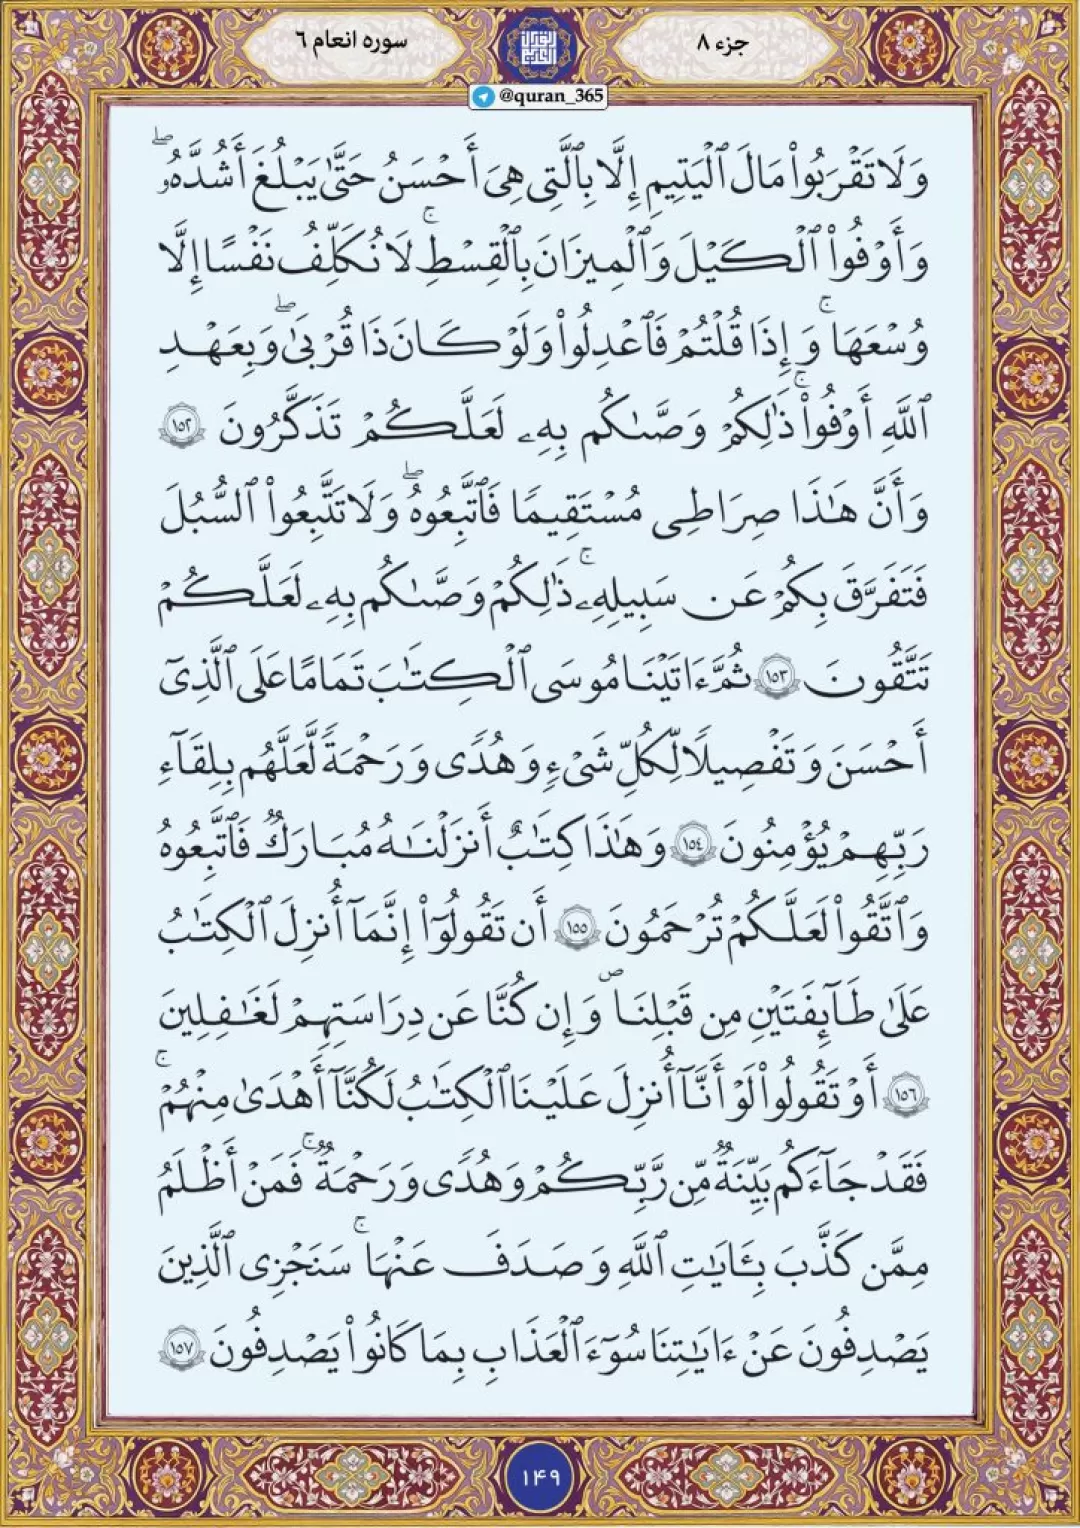 جزء ۸
سوره انعام ۶
@quran_365
وَلَا تَقْرَبُوا۟ مَالَ ٱلْيَتِيمِ إِلَّا بِٱلَّتِى هِىَ أَحْسَنُ حَتَّىٰ يَبْلُغَ أَشُدَّهُۥ ۖ
وَأَوْفُوا۟ ٱلْكَيْلَ وَٱلْمِيزَانَ بِٱلْقِسْطِ ۖ لَا نُكَلِّفُ نَفْسًا إِلَّا
وُسْعَهَا ۖ وَإِذَا قُلْتُمْ فَٱعْدِلُوا۟ وَلَوْ كَانَ ذَا قُرْبَىٰ ۖ وَبِعَهْدِ
ٱللَّهِ أَوْفُوا۟ ۚ ذَٰلِكُمْ وَصَّىٰكُم بِهِۦ لَعَلَّكُمْ تَذَكَّرُونَ ١٥٢
وَأَنَّ هَـٰذَا صِرَٰطِى مُسْتَقِيمًا فَٱتَّبِعُوهُ ۖ وَلَا تَتَّبِعُوا۟ ٱلسُّبُلَ
فَتَفَرَّقَ بِكُمْ عَن سَبِيلِهِۦ ۚ ذَٰلِكُمْ وَصَّىٰكُم بِهِۦ لَعَلَّكُمْ
تَتَّقُونَ ١٥٣ ثُمَّ ءَاتَيْنَا مُوسَى ٱلْكِتَـٰبَ تَمَامًا عَلَى ٱلَّذِىٓ
أَحْسَنَ وَتَفْصِيلًا لِّكُلِّ شَىْءٍ وَهُدًى وَرَحْمَةً لَّعَلَّهُم بِلِقَآءِ
رَبِّهِمْ يُؤْمِنُونَ ١٥٤ وَهَـٰذَا كِتَـٰبٌ أَنزَلْنَـٰهُ مُبَارَكٌ فَٱتَّبِعُوهُ
وَٱتَّقُوا۟ لَعَلَّكُمْ تُرْحَمُونَ ١٥٥ أَن تَقُولُوٓا۟ إِنَّمَآ أُنزِلَ ٱلْكِتَـٰبُ
عَلَىٰ طَآئِفَتَيْنِ مِن قَبْلِنَا ۖ وَإِن كُنَّا عَن دِرَاسَتِهِمْ لَغَـٰفِلِينَ
١٥٦ أَوْ تَقُولُوا۟ لَوْ أَنَّآ أُنزِلَ عَلَيْنَا ٱلْكِتَـٰبُ لَكُنَّآ أَهْدَىٰ مِنْهُمْ ۚ
فَقَدْ جَآءَكُم بَيِّنَةٌ مِّن رَّبِّكُمْ وَهُدًى وَرَحْمَةٌ ۚ فَمَنْ أَظْلَمُ
مِمَّن كَذَّبَ بِـَٔايَـٰتِ ٱللَّهِ وَصَدَفَ عَنْهَا ۗ سَنَجْزِى ٱلَّذِينَ
يَصْدِفُونَ عَنْ ءَايَـٰتِنَا سُوٓءَ ٱلْعَذَابِ بِمَا كَانُوا۟ يَصْدِفُونَ ١٥٧
۱۴۹